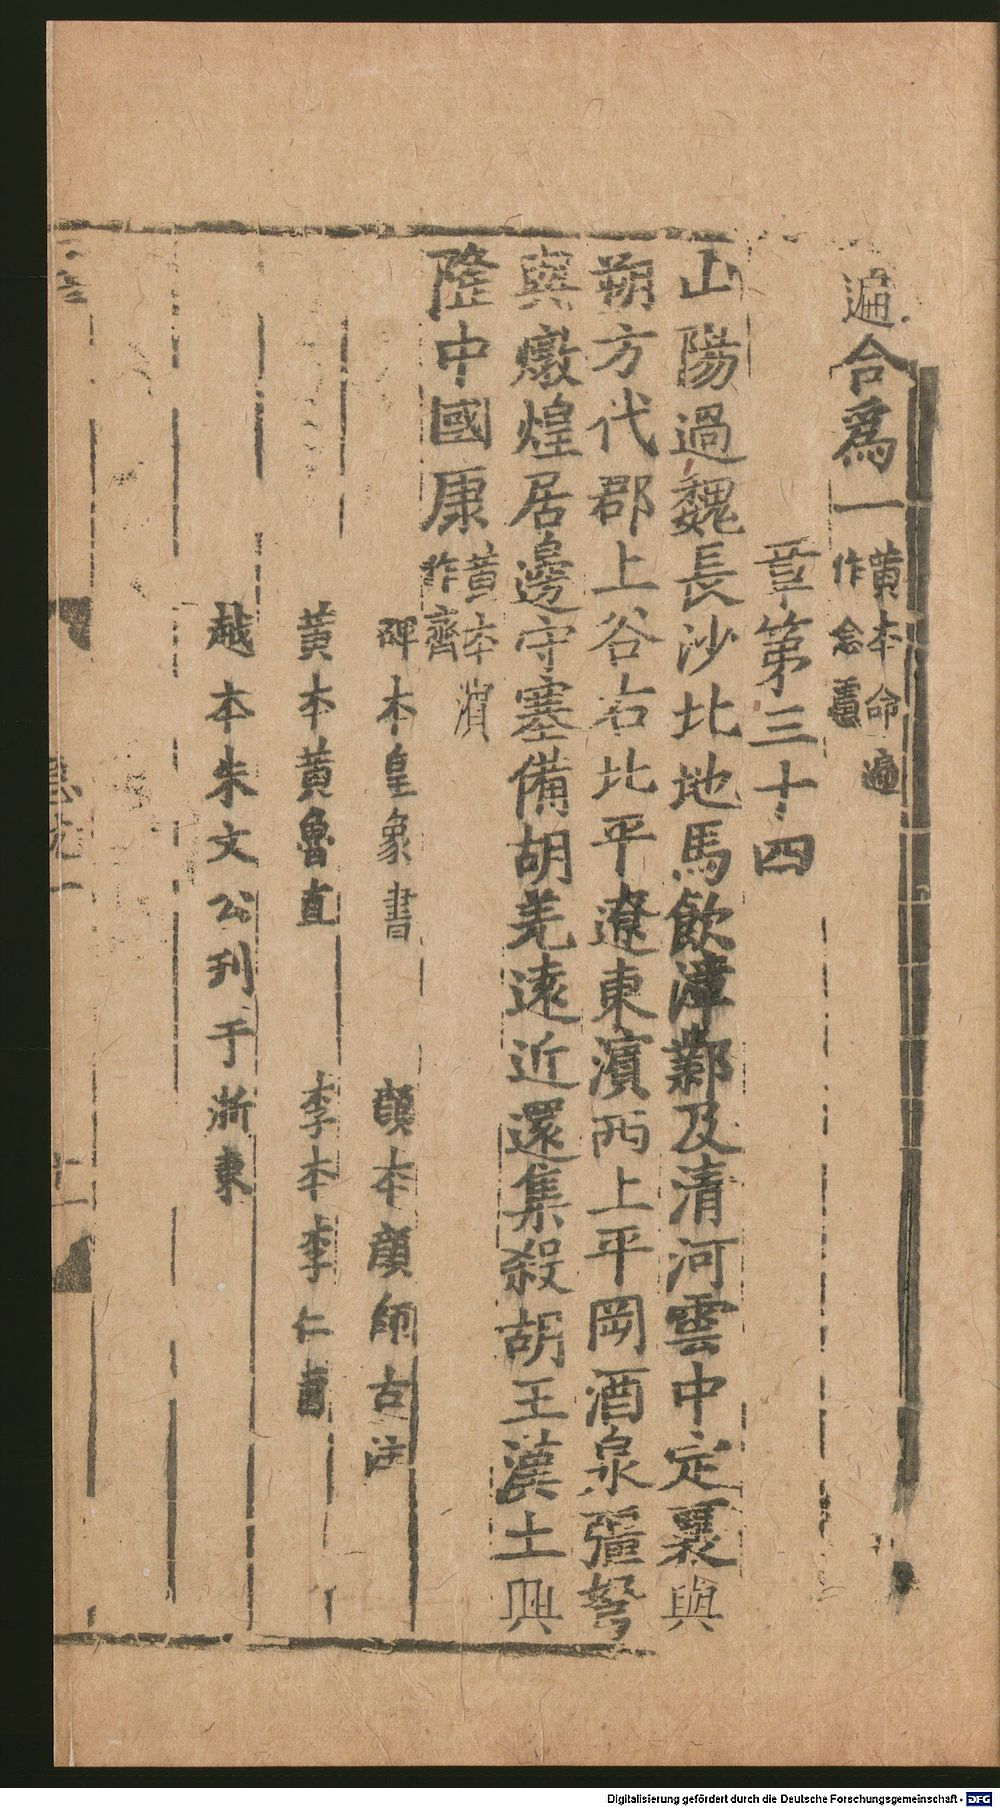 遍合爲一黃本命遍作念慝
章第三十四
山陽過魏長沙北地馬飲漳鄴及清河雲中定襄與
朔方代郡上谷右北平遼東濱西上平岡酒泉彊弩
與燉煌居邊守塞備胡羌遠近還集殺胡王漢土興
隆中國康黃本濱作齊
碑本皇象書 顏本顏師古注
黃本黃魯直 李本李仁甫
越本朱文公刊于浙東
Digitalisierung gefördert durch die Deutsche Forschungsgemeinschaft - DFG